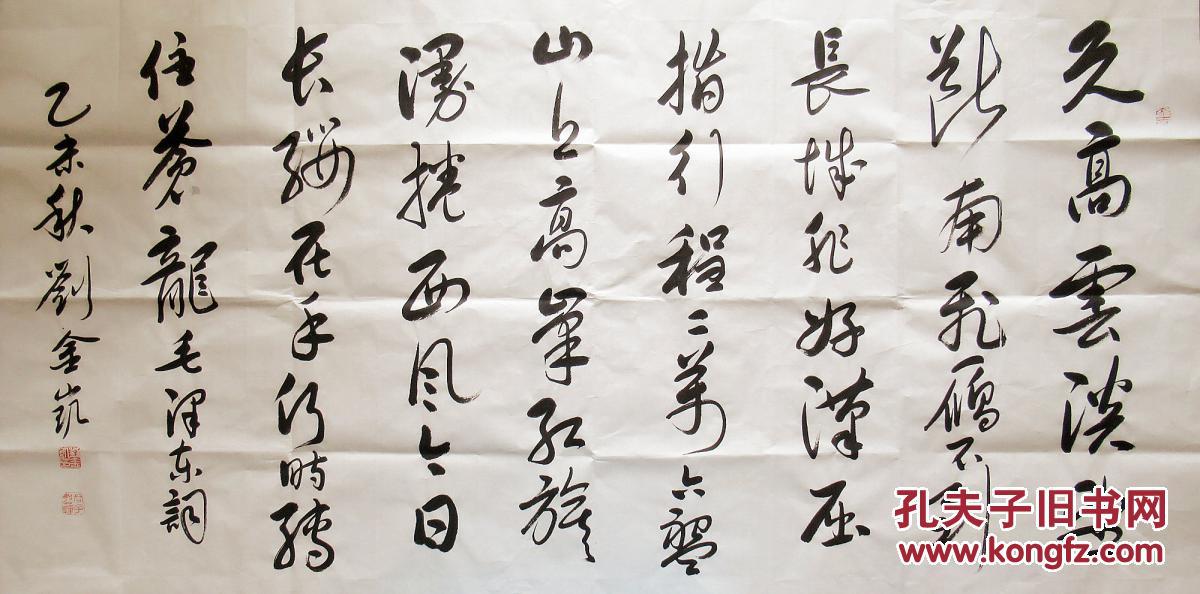 天高雲淡望
斷南飛雁不到
長城非好漢屈
指行程二萬六盤
山上高峯紅旗
漫捲西风今日
长纓在手何时縛
住蒼龍毛澤东詞
乙未秋劉金凱
孔夫子旧书网
www.kongfz.com